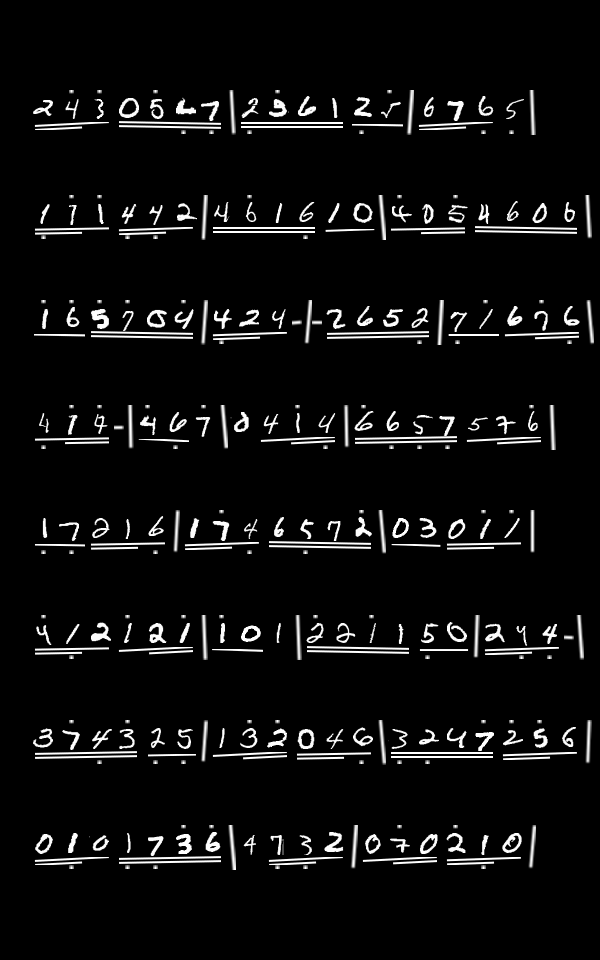 2430547|23612√5|6765
171442|4616 10|4054606
165704|424-|-26532|71676
474-|467|0414|6657576
17216|1746572|03011
412121|101|221150|244-
374325|132046|3247256
0101736|4732|070210